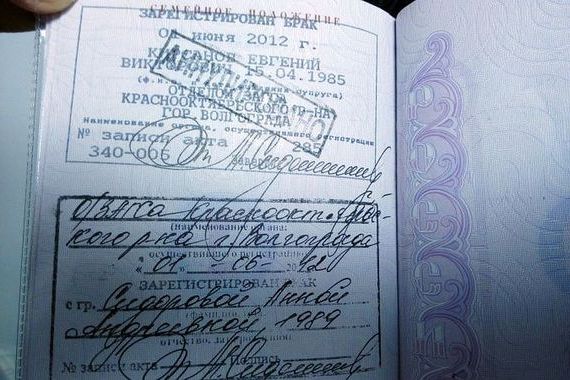 СЕМЕЙНОЕ ПОЛОЖЕНИЕ
ЗАРЕГИСТРИРОВАН БРАК
01 июня 2012 г.
ЕВГЕНИЙ
15.04.1985
супруга)
ОТДЕЛОМ
КРАСНООКТЯБРЬСКОГО Р-НА
ГОР. ВОЛГОГРАДА
наименование органа, осуществившего регистрацию
№ записи акта 285
340-006 Заверил
О/ЗАГСа Краснооктябрьс-
кого р-на г. Волгограда
(наименование органа,
осуществившего регистрацию)
"01" - 06 - 2012
ЗАРЕГИСТРИРОВАН БРАК
с гр. Сидоровой Анной
Андреевной, 1989
отчество, дата рождения)
№ записи акта Подпись